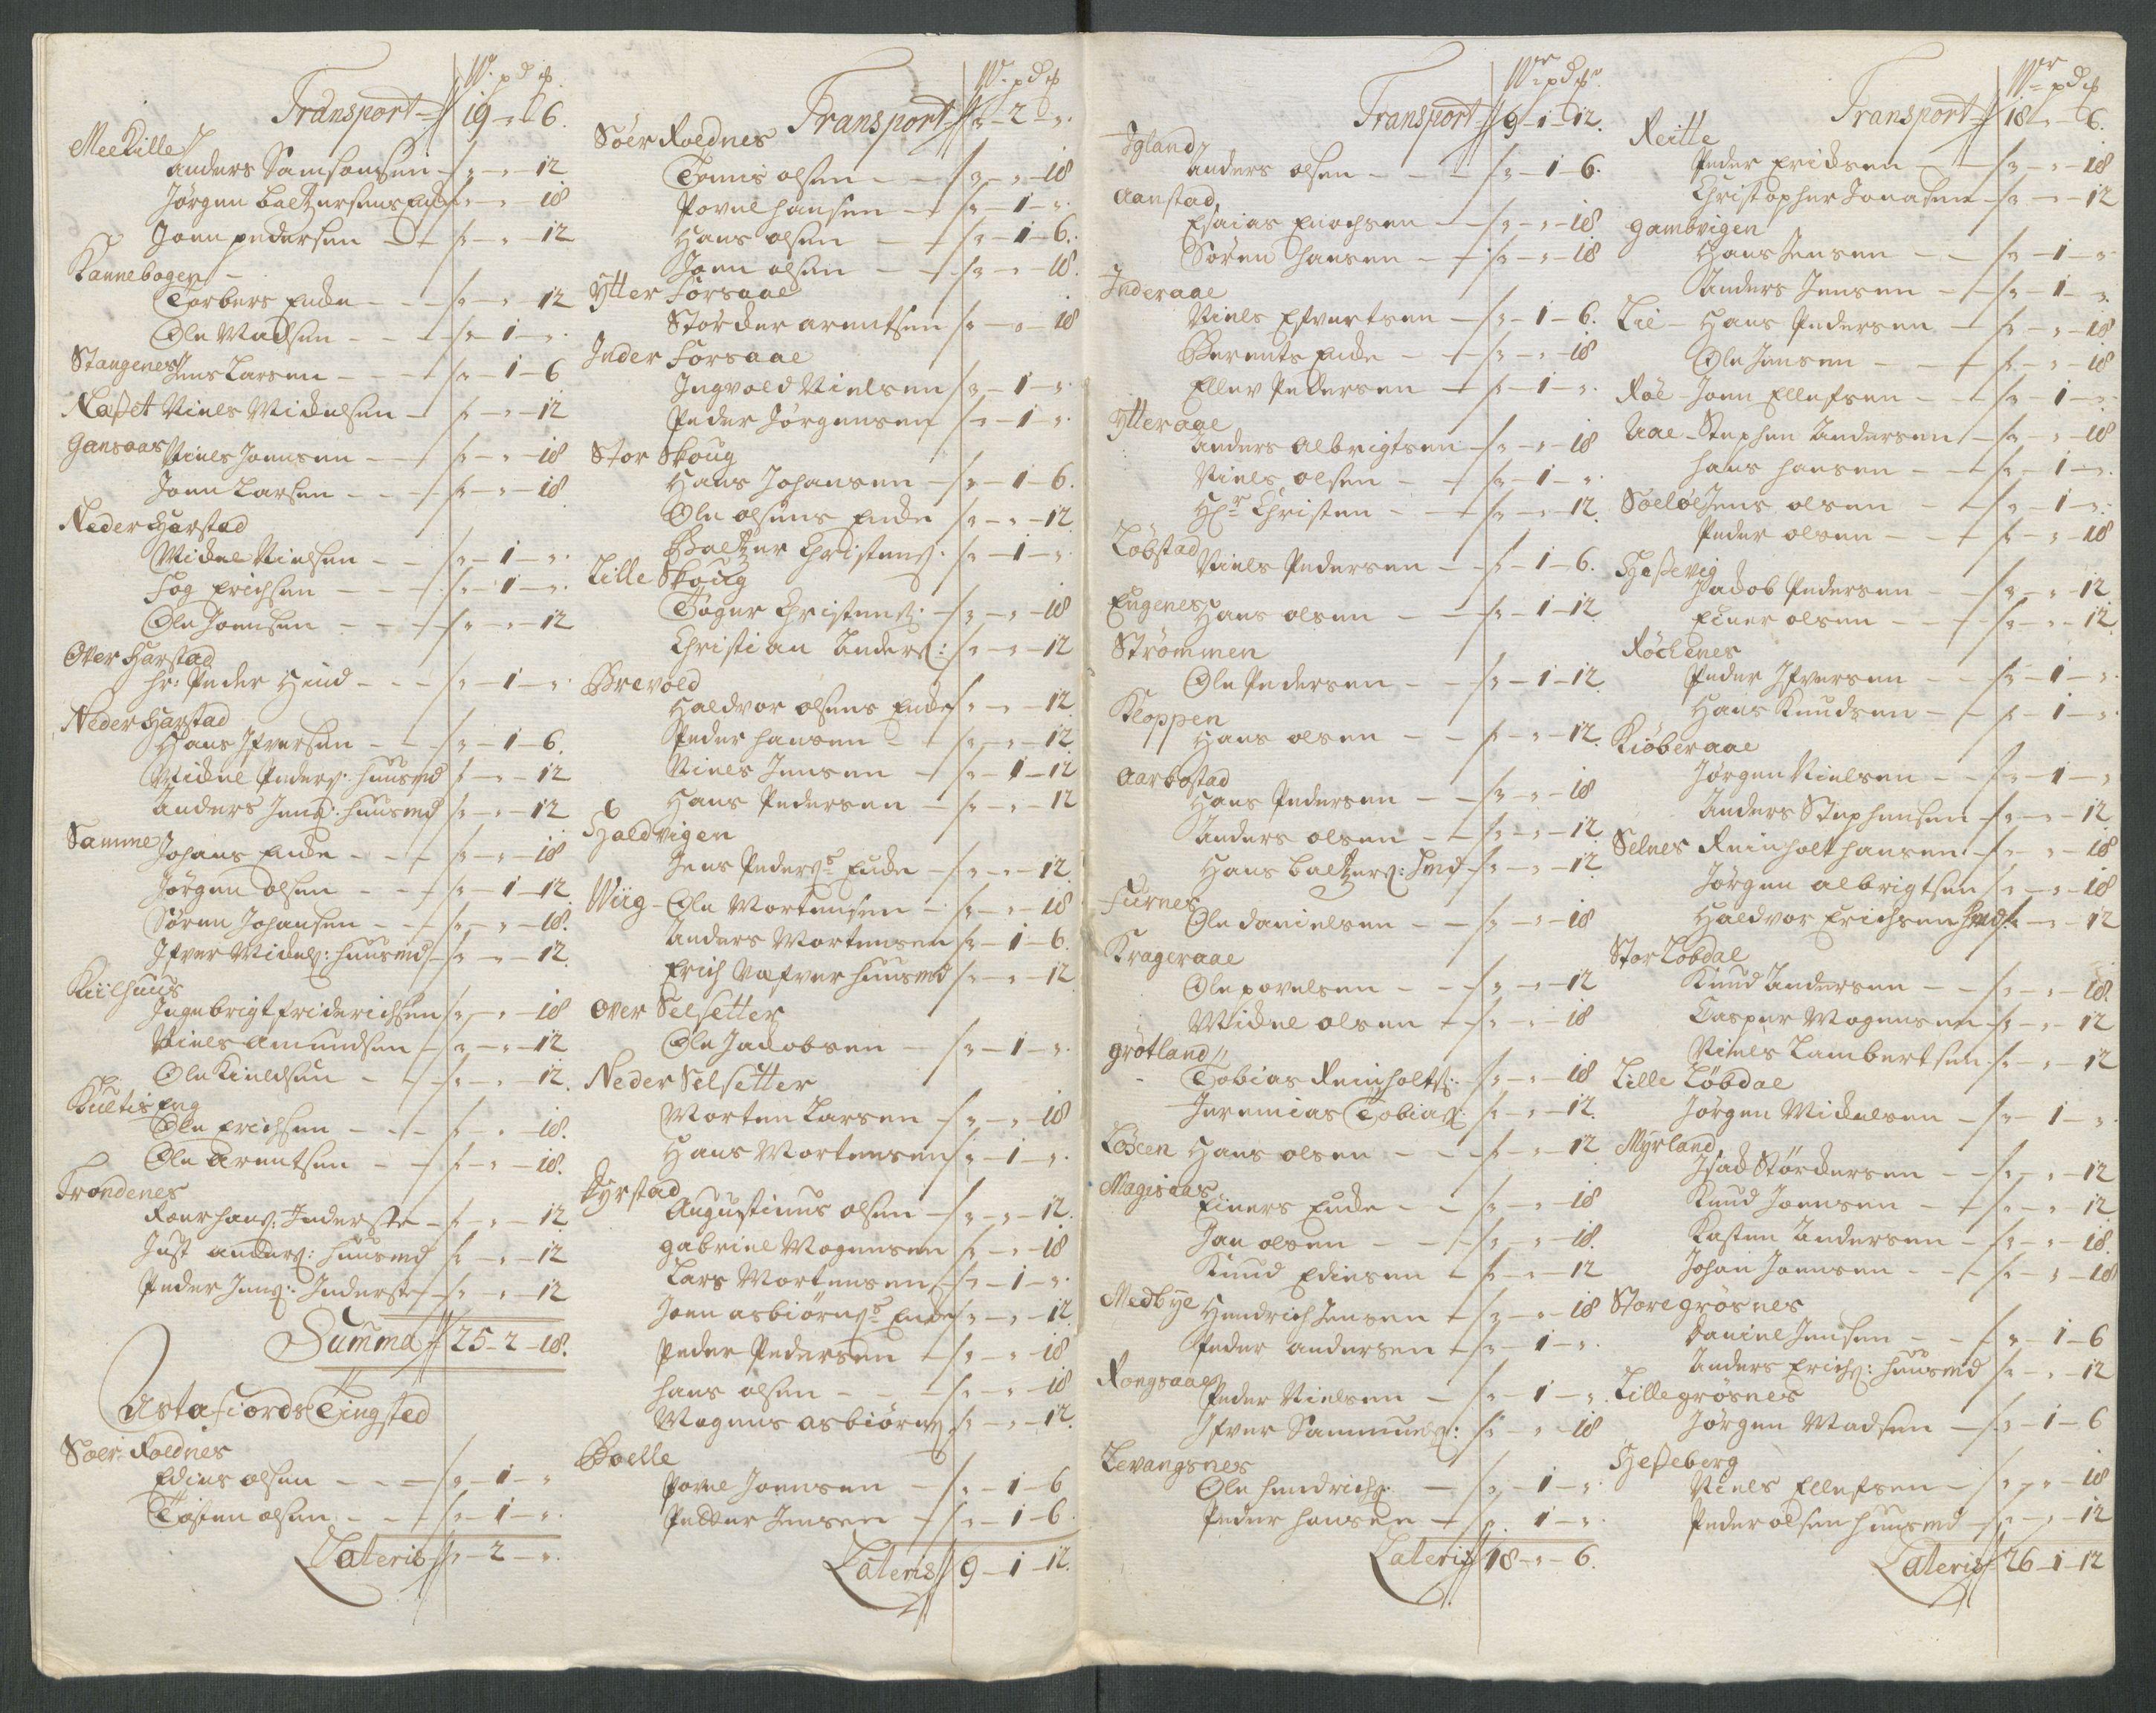 W. pd ℔
Transport 19 - " - 6.
MeeKille
Anders Samsonsen - " - " - 12
Jørgen Baltzersens Enke " - " - 18
Joen pedersen - " - " - 12
Kannebogen
Torbers Enke - " - " - 12
Ole Madsen - " - 1 - ".
Stangenes Jens Larsen - " - 1 - 6
Næsset Niels Mickelsen - " - " - 12
Gansaas Niels Joensen - " - " - 18
Joen Larsen - " - " - 18
Neder Harstad
Mickel Nielsen - " - 1 - ".
Fog Erichsen - " - 1 - ".
Ole Joensen - " - " - 12
Over Harstad
hr: Peder Hind - " - 1 - ".
Neder Harstad
Hans Ifversen - " - 1 - 6.
Mickel Peders: huusmd " - " - 12
Anders Jens: huusmd " - " - 12
Samme Johans Enke - " - " - 18
Jørgen olsen - " - 1 - 12
Søren Johansen - " - " - 18.
Ifver Mickels: huusmd " - " - 12.
Kiilhuus
Ingebrigt friderichsen " - " - 18
Niels Amundsen - " - " - 12
Ole Kieldsen - " - " - 12.
Kultis Eng
Ole Erichsen - " - " - 18.
Ole Arentsen - " - " - 18.
Trondenes
Roer hans: Inderste - " - " - 12
Just anders: huusmd " - " - 12
Peder Jens: Inderste " - " - 12
Summa 25 - 2 - 18.
Astafiords Tingsted
Søer Roldnes
Edies olsen - " - 1 - "
Tosten olsen - " - 1 - ".
Lateris " - 2 - ".
W. pd ℔
Transport " - 2 - ".
Söer Roldnes
Tönnis olsen - " - " - 18
Povel hansen - " - 1 - ".
Hans olsen - " - 1 - 6.
Joen olsen - " - " - 18.
Ytter Forsaae
Störcker arentsen " - " - 18
Inder Forsaae
Ingvold Nielsen " - 1 - ".
Peder Jørgensen " - 1 - ".
Stor Skoug
Hans Johansen - " - 1 - 6.
Ole olsens Enke " - " - 12.
Baltzer Christens: " - 1 - ".
Lille Skoug
Töger Christens: - " - " - 18
Christian Anders: " - " - 12
Brevold
Haldvor olsens Enke " - " - 12.
Peder hansen - " - " - 12.
Niels Jensen - " - 1 - 12
Hans Pedersen - " - " - 12
Haldvigen
Jens Peders: Enke - " - " - 12.
Wiig - Ole Mortensen - " - " - 18
Anders Mortensen " - 1 - 6.
Erich Væfver huusmd " - " - 12
Over Selsetter
Ole Jacobsen - " - 1 - ".
Neder Selsetter
Morten Larsen - " - " - 18
Hans Mortensen " - 1 - ".
Dyrstad
Augustinus olsen - " - " - 12.
Gabriel Mogensen " - " - 18
Lars Mortensen " - 1 - ".
Joen asbiørns: Enke " - " - 12
Peder Pedersen - " - " - 18
hans olsen - " - " - 18
Mogens asbiørns: " - " - 12.
Bolle
Povel Joensen - " - 1 - 6
Petter Jensen - " - 1 - 6.
Lateris 9 - 1 - 12.
Wr pd ℔
Transport 9 - 1 - 12.
Igland
anders olsen - " - 1 - 6.
Aanstad
Esaias Enochsen - " - " - 18
Sören hansen - " - " - 18
Inderaae
Niels Efvertsen - " - 1 - 6.
Berents Enke - " - " - 18
Ellev Pedersen - " - 1 - ".
Ytteraae
Anders albrigtsen " - " - 18
Niels olsen - " - 1 - ".
Hr Christen - " - " - 12.
Löbstad
Niels Pedersen - " - 1 - 6.
Engenes Hans olsen - " - 1 - 12
Strömmen
Ole Pedersen - " - 1 - 12
Kloppen
Hans olsen - " - " - 12.
Aarbostad
Hans Pedersen - " - " - 18
Anders olsen - " - " - 12.
Hans Baltzers: hmd " - " - 12
Furnes
Ole danielsen - " - " - 18
Krageraae
Ole povelsen - " - " - 12
Mickel olsen - " - " - 18
grötland
Tobias Reinholts: " - " - 18
Jeremias Tobias: " - " - 12.
Löseen Hans olsen - " - " - 12
Magisaas
Einers Enke - " - " - 18
Jan olsen - " - " - 18.
Knud Ediesen - " - " - 12
Medbye Hendrich Jensen - " - " - 18
Peder andersen - " - 1 - ".
Rongsaae
Peder Nielsen - " - 1 - ".
Ifver Sammuels: " - " - 18
Levangsnes
Ole hendrichs: - " - 1 - ".
Peder hansen - " 1 - ".
Lateris 18 - " - 6.
Wr pd ℔
Transport 18 - " - 6.
Reitte
Peder Ericksen - " - " - 18
Christopher Jonasen " - " - 12
Gambvigen
Hans Jensen - " - 1 - "
Anders Jensen - " - 1 - ".
Lie - Hans Pedersen - " - " - 18
Ole Jensen - " - " - 18
Röe - Joen Ellefsen - " - 1 - ".
Aae - Stephen Andersen - " - " - 18
hans hansen - " - 1 - ".
Söelöe Jens olsen - " - 1 - ".
Peder olsen - " - " - 18
Hessevig
Jacob Pedersen - " - " - 12
Einer olsen - " - " - 12.
Röckenes
Peder Ifversen - " - 1 - ".
Hans Knudsen - " - 1 - ".
Kiöberaae
Jørgen Nielsen - " - 1 - "
Anders Stephensen " - " - 12
Selnes Reinholt hansen " - " - 18
Jørgen albrigtsen " - " - 18
Haldvor Erichsen hmd " - " - 12
Stor Löbdal
Knud Andersen - " - " - 18.
Casper Mogensen " - " - 12
Niels Lambertsen " - " - 12
Lille Löbdal
Jørgen Mickelsen - " - 1 - ".
Myrland
Isack Störckersen - " - " - 12
Knud Joensen - " - " - 12
Kasten Andersen - " - " - 18.
Johan Joensen - " - " - 18
Storegrösnes
Daniel Jensen - " - 1 - 6
Anders Erichs: huusmd " - " - 12
Lillegrösnes
Jørgen Madsen - " - 1 - 6
Hesseberg
Niels Ellefsen - " - " - 18
Peder olsen huusmd " - " - 12
Lateris 26 - 1 - 12